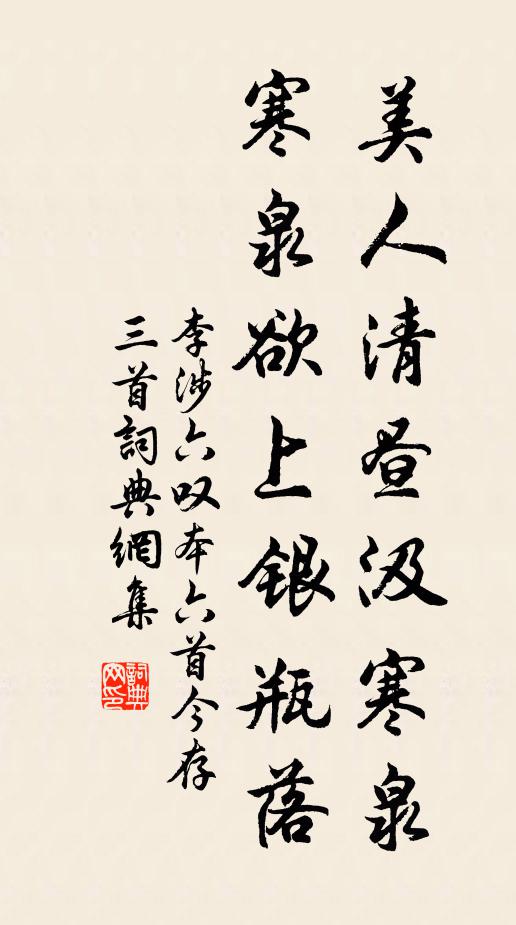 美人清昼汲寒泉
寒泉欲上银瓶落
李涉六叹本六首今存
三首詞典網集
詞典网印